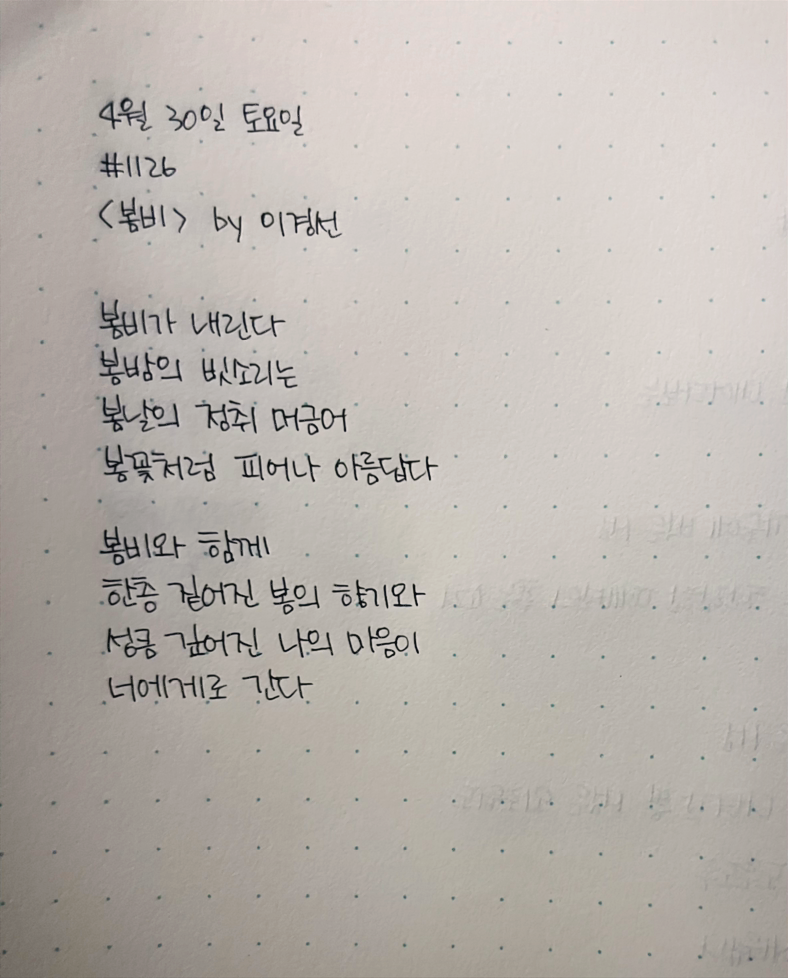 4월 30일 토요일
#1126
<봄비> by 이경선
봄비가 내린다
봄밤의 빗소리는
봄날의 정취 머금어
봄꽃처럼 피어나 아름답다
봄비와 함께
한층 짙어진 봄의 향기와
성큼 깊어진 나의 마음이
너에게로 간다